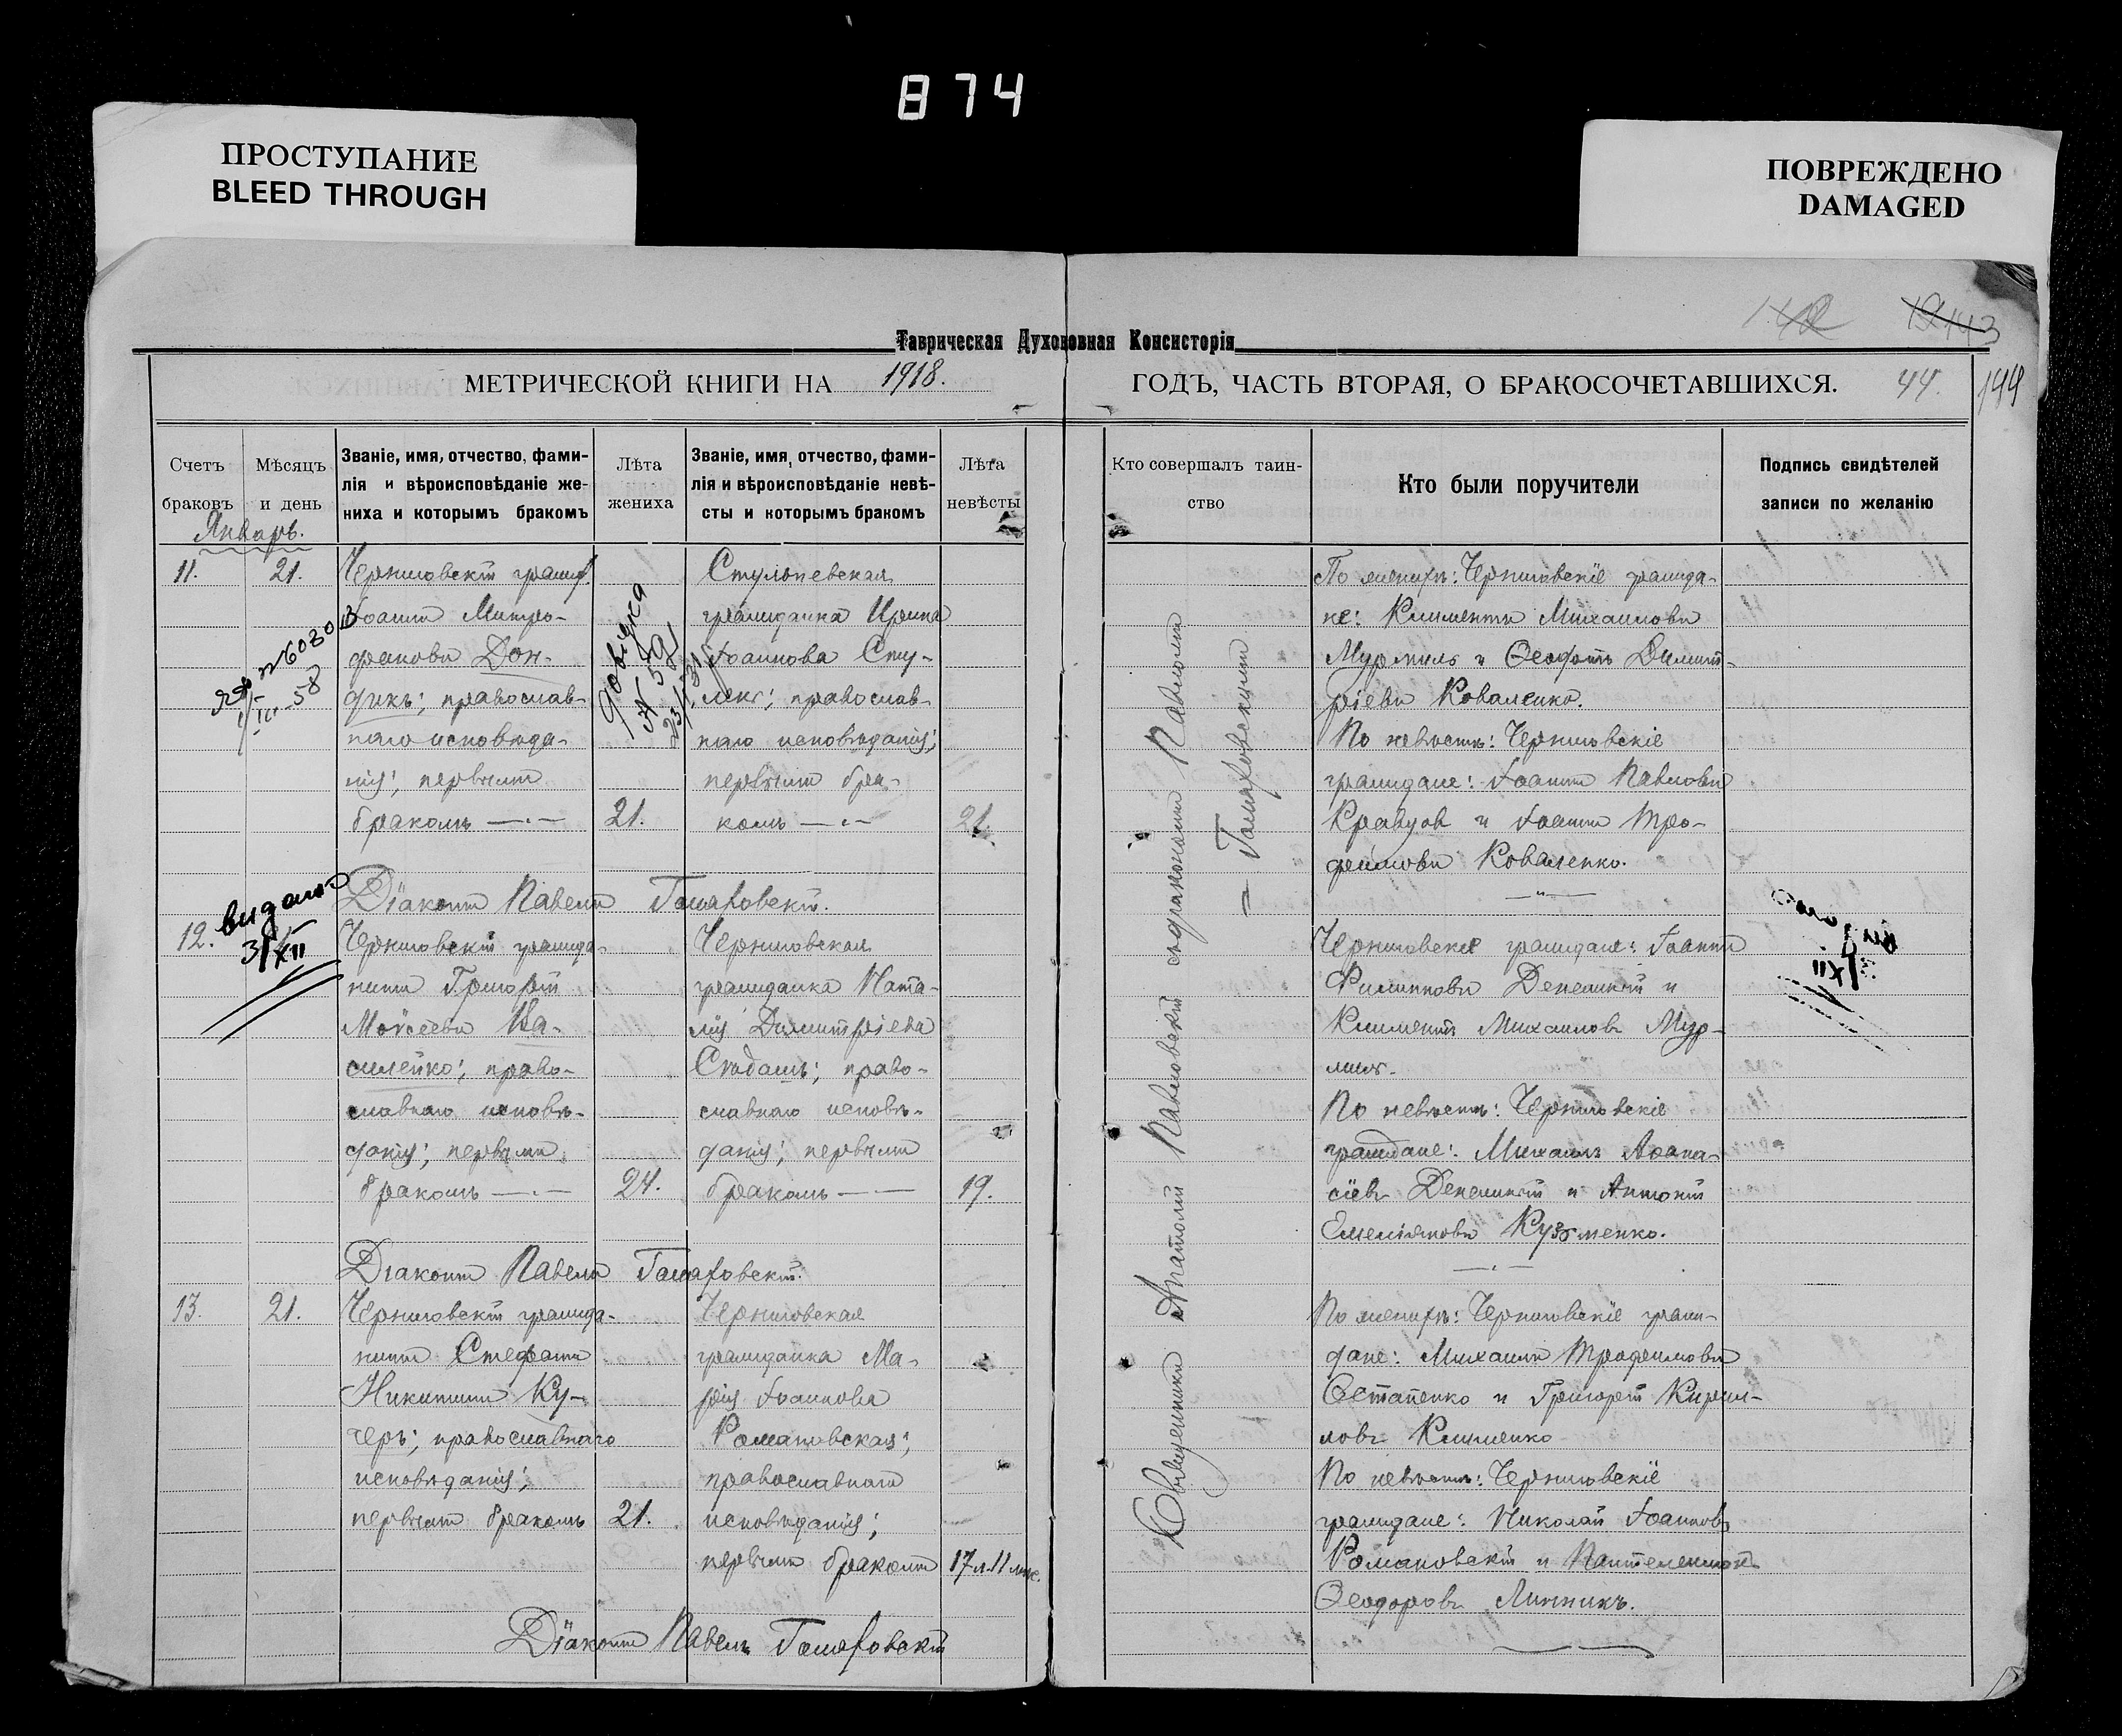 874
ПРОСТУПАНИЕ
BLEED THROUGH
ПОВРЕЖДЕНО
DAMAGED
142 19 143
Таврическая Духововная Консисторія
МЕТРИЧЕСКОЙ КНИГИ НА 1918.
ГОДЪ, ЧАСТЬ ВТОРАЯ, О БРАКОСОЧЕТАВШИХСЯ. 44. 144
Счетъ браковъ
Мѣсяцъ и день
Званіе, имя, отчество, фами-
лія и вѣроисповѣданіе же-
ниха и которымъ бракомъ
Лѣта жениха
Званіе, имя, отчество, фами-
лія и вѣроисповѣданіе невѣ-
сты и которымъ бракомъ
Лѣта невѣсты
Кто совершалъ таин-
ство
Кто были поручители
Подпись свидѣтелей
записи по желанію
Январь.
11. 21.
Черниговскій гражд.
Іоаннъ Митро-
фановъ Дон-
дикъ; православ-
наго исповѣда-
нія; первымъ
бракомъ 21.
№ 6030
58
Довідка
Стульневская
гражданка Ирина
Іоаннова Сту-
; православ-
наго исповѣданія;
первымъ бра-
комъ 21.
По женихѣ: Черниговскіе гражда-
не: Климентъ Михаиловъ
и Ѳеофанъ Димит-
ріевъ Коваленко.
По невѣстѣ: Черниговскіе
граждане: Іоаннъ Павловъ
Кравцов и Іоаннъ Тро-
фимовъ Коваленко.
Діаконъ Павелъ Гомаховскій.
12.
видано
3/XII
Черниговскій гражда-
нинъ Григорій
Моѵсеевъ Ва-
силейко; право-
славнаго исповѣ-
данія; первымъ
бракомъ 24.
Черниговская
гражданка Ната-
лія Димитріева
; право-
славнаго исповѣ-
данія; первымъ
бракомъ 19.
Черниговскіе граждане: Іоаннъ
Филипповъ и
Климентъ Михаиловъ
По невѣстѣ: Черниговскіе
граждане: Михаилъ Аѳана-
сіевъ и Антоній
Емеліановъ Кузьменко.
Діаконъ Павелъ Гомаховскій.
13. 21.
Черниговскій гражда-
нинъ Стефанъ
Никитинъ Ку-
черъ; православнаго
исповѣданія;
первымъ бракомъ 21.
Черниговская
гражданка Ма-
рія Іоаннова
Романовская;
православнаго
исповѣданія;
первымъ бракомъ 17 л. 11 мѣс.
По женихѣ: Черниговскіе граж-
дане: Михаилъ Трофимовъ
Остапенко и Григорій Кирил-
ловъ Клименко
По невѣстѣ: Черниговскіе
граждане: Николай Іоанновъ
Романовскій и Пантелеимонъ
Ѳеодоровъ Линникъ.
Діаконъ Павелъ Гомаховскій
Священникъ Анатолій Павловскій съ діакономъ Павломъ
Гомаховскимъ